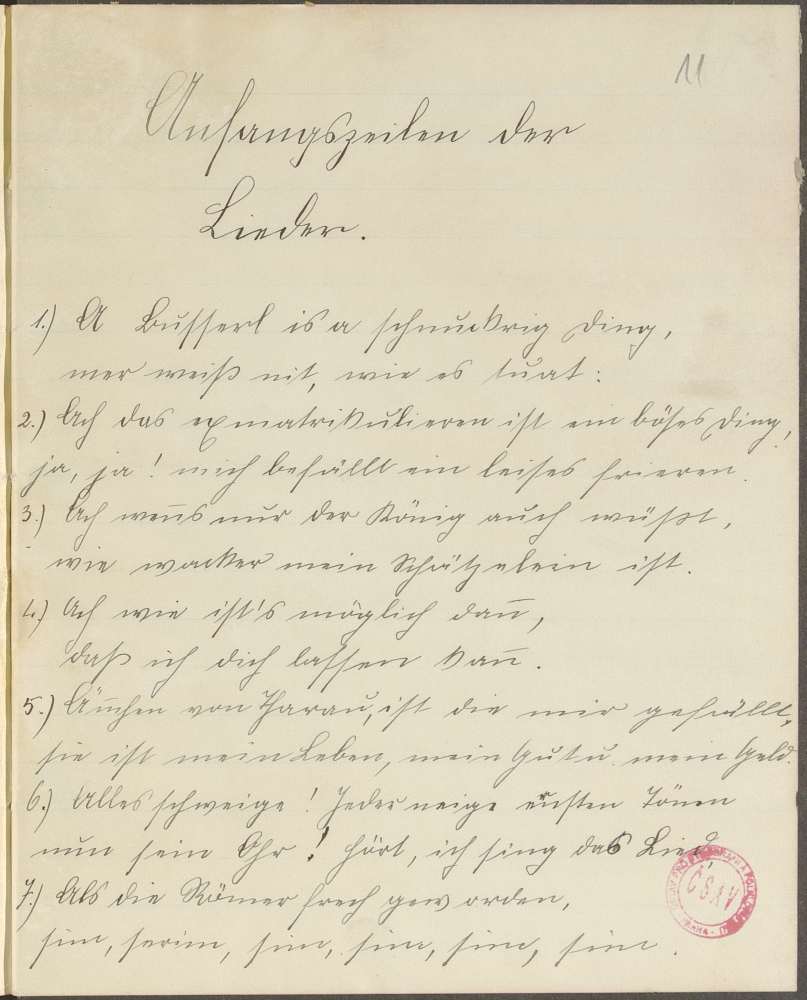 11
Anfangszeilen der
Lieder.
1.) A Busserl is a schnuckrig Ding,
mer weiß nit, wie es tuat:
2.) Ach das exmatrikulieren ist ein böses Ding,
ja, ja! mich befällt ein leises frieren.
3.) Ach weñs nur der König auch wüßt,
wie wacker mein Schätzelein ist.
4.) Ach wie ist's möglich dañ,
daß ich dich lassen kañ.
5.) Äñchen von Tharau, ist die mir gefällt,
sie ist mein Leben, mein Gut u. mein Geld.
6.) Alles schweige! Jeder neige ernsten Tönen
nun sein Ohr! hört, ich sing das Lied
7.) Als die Römer frech geworden,
sim, serim, sim, sim, sim, sim.
ČSAV